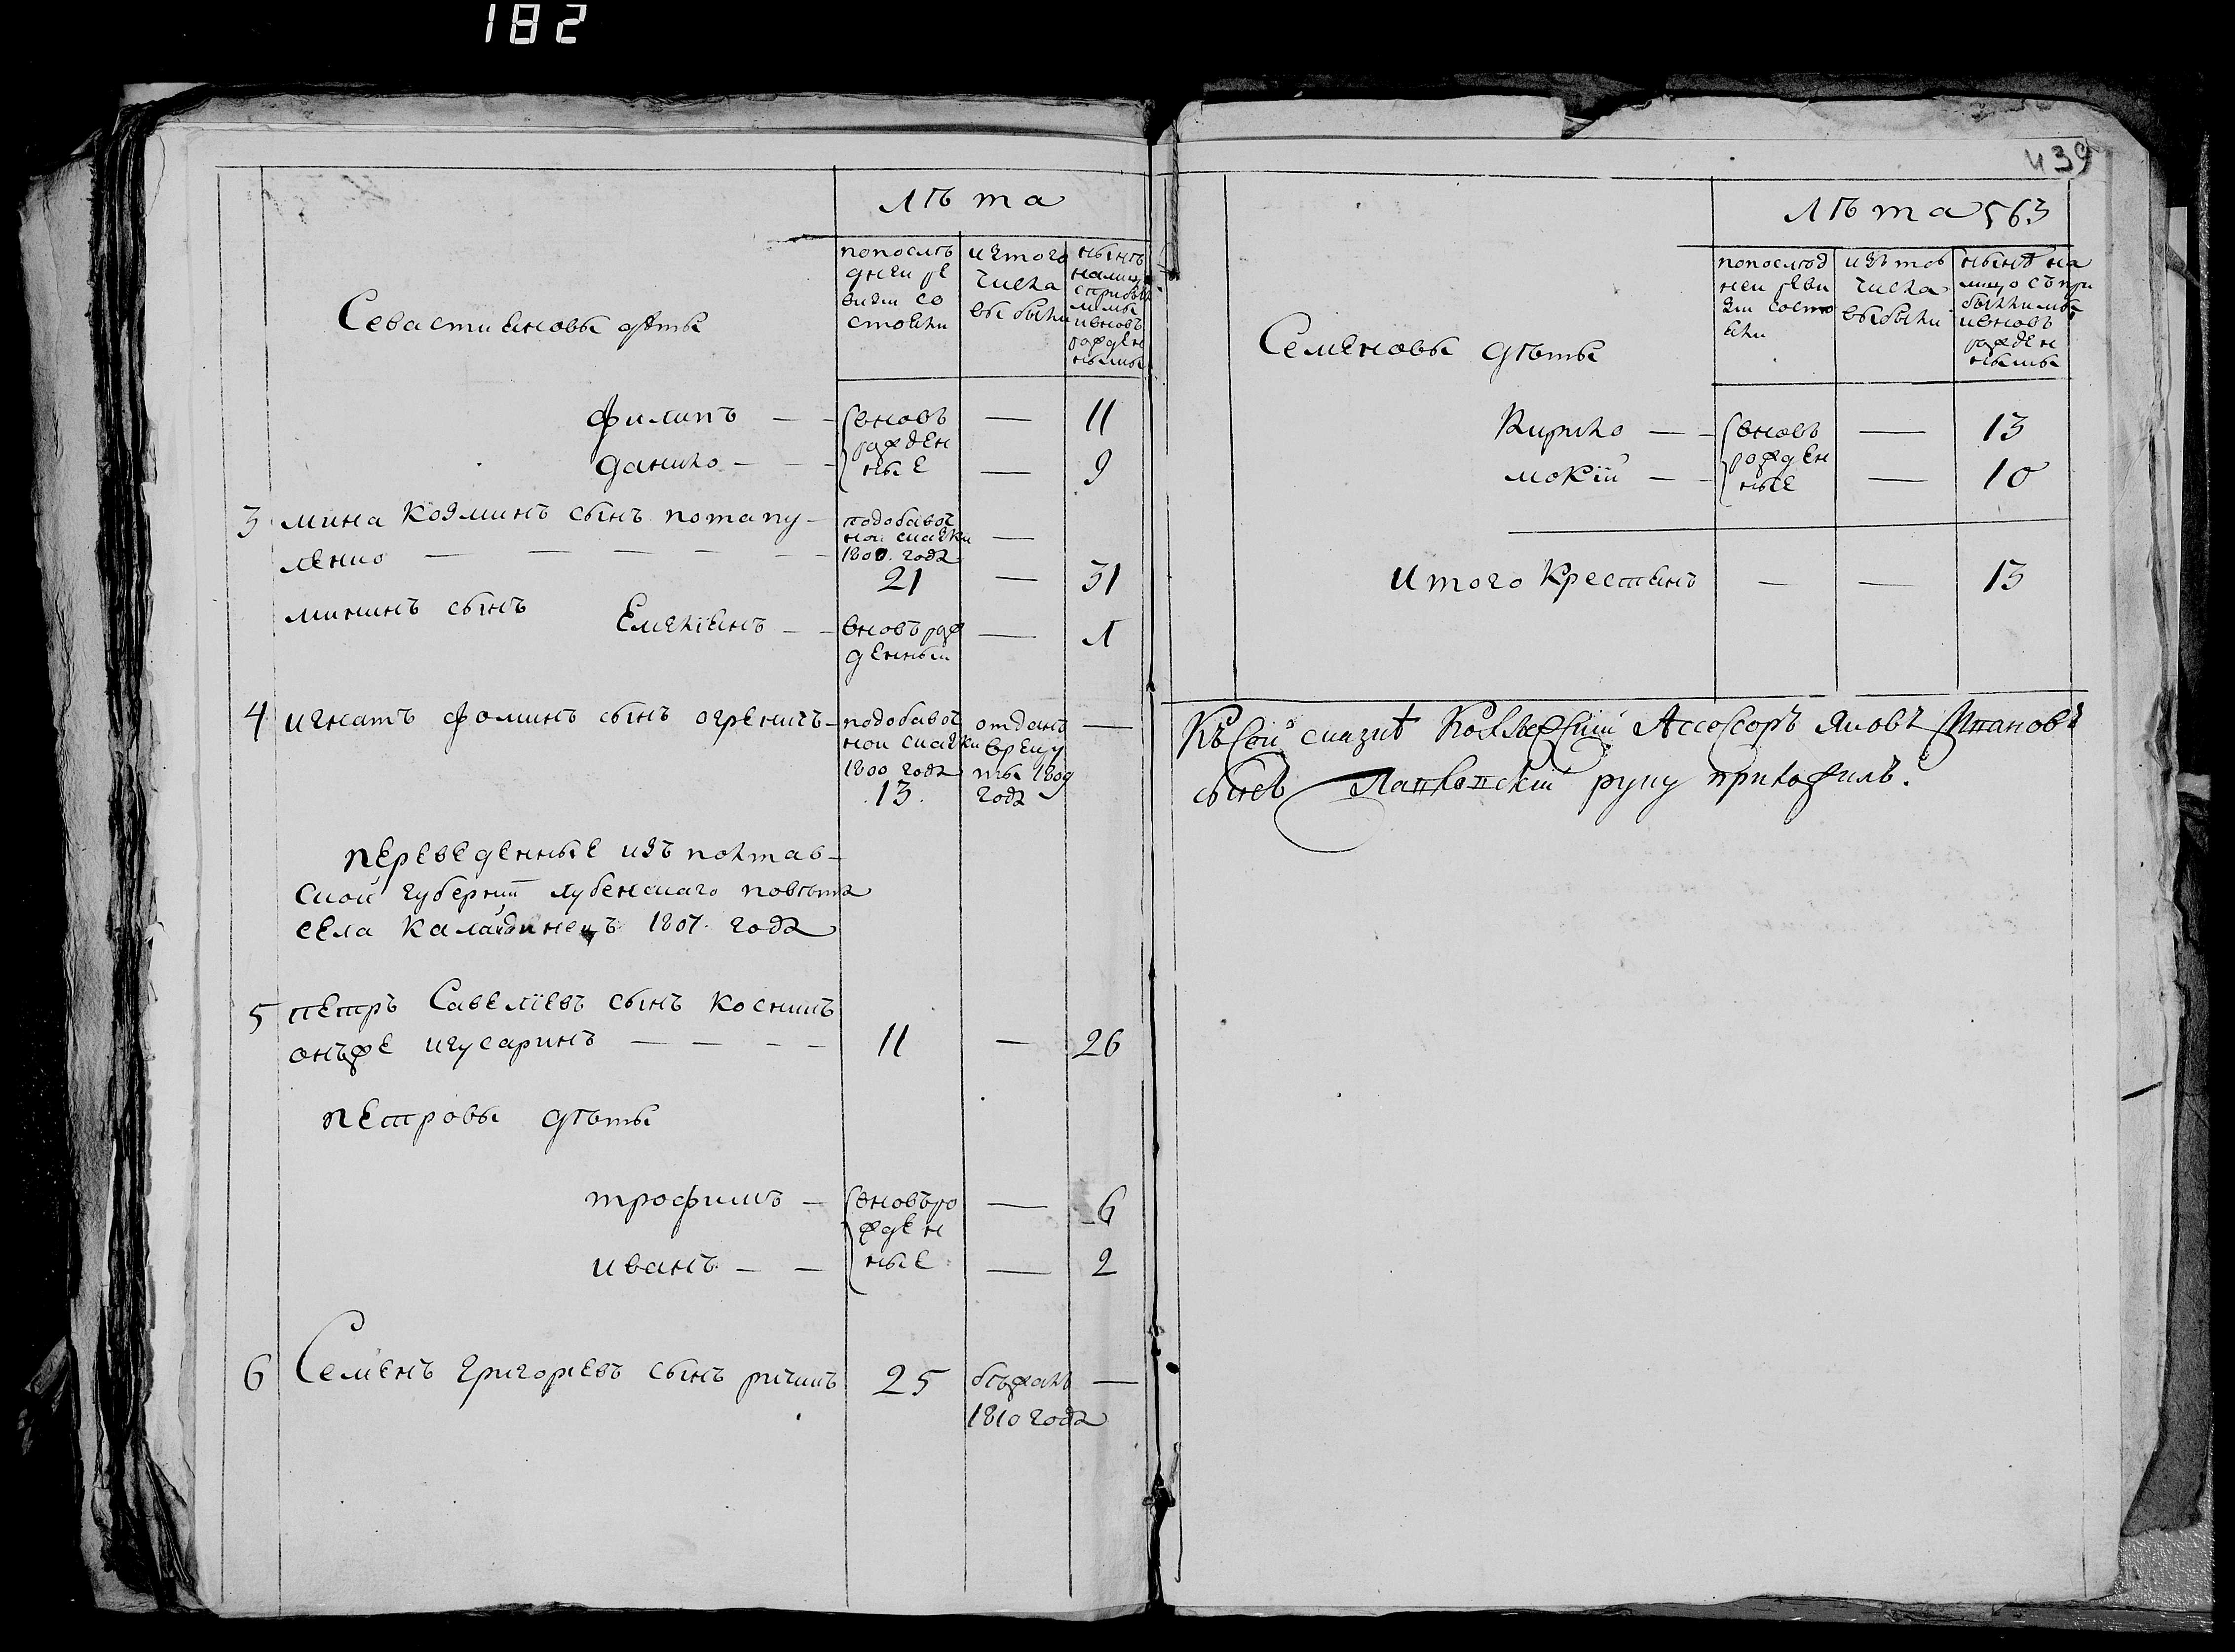 182
лѣта
попослѣ
дней ре
визіи со
стояли
изтого
числа
выбыли
нынѣ
налицо
сприбы
лыми
ивновь
рожден
ными
Севастияновы дѣты
филипъ — — вновь — 11
рожден
данило — — ные — 9
3 мина козминъ сынъ потапу-
ленко — — — — —
подобавоч
ной скаски —
1800. года
21 — 31
мининъ сынъ
Емелїянъ — — вновь рож — 1
денный
4 игнатъ фоминъ сынъ огреничъ — подобавоч отданъ —
ной скаски врекру
1800 года ты 1809
13. года
переведенные изъ полтав-
ской губернїи лубенскаго повѣта
села Калайдинецъ 1807. года
5 петръ Савелїевъ сынъ
онъже игусаринъ — — — — 11 — 26
петровы дѣты
трофимъ — вновьро — 6
жден
иванъ — — ные — 2
6 Семенъ григорїевъ сынъ ричичъ 25 бѣжалъ —
1810 года
439
лѣта 563
попослѣд
ней реви
зіи состо
яли
изъ тов
числа
выбыли
нынѣ на
лицо съпри
былими
ивновь
рожден
ными
Семеновы дѣты
Кирило — — вновь — 13
рожден
мокїй — — ные — 10
итого крестянъ — — 13
Къ сей сказкѣ Коллежскїй Ассесоръ Яковъ Ивановъ
сынъ руку приложилъ.